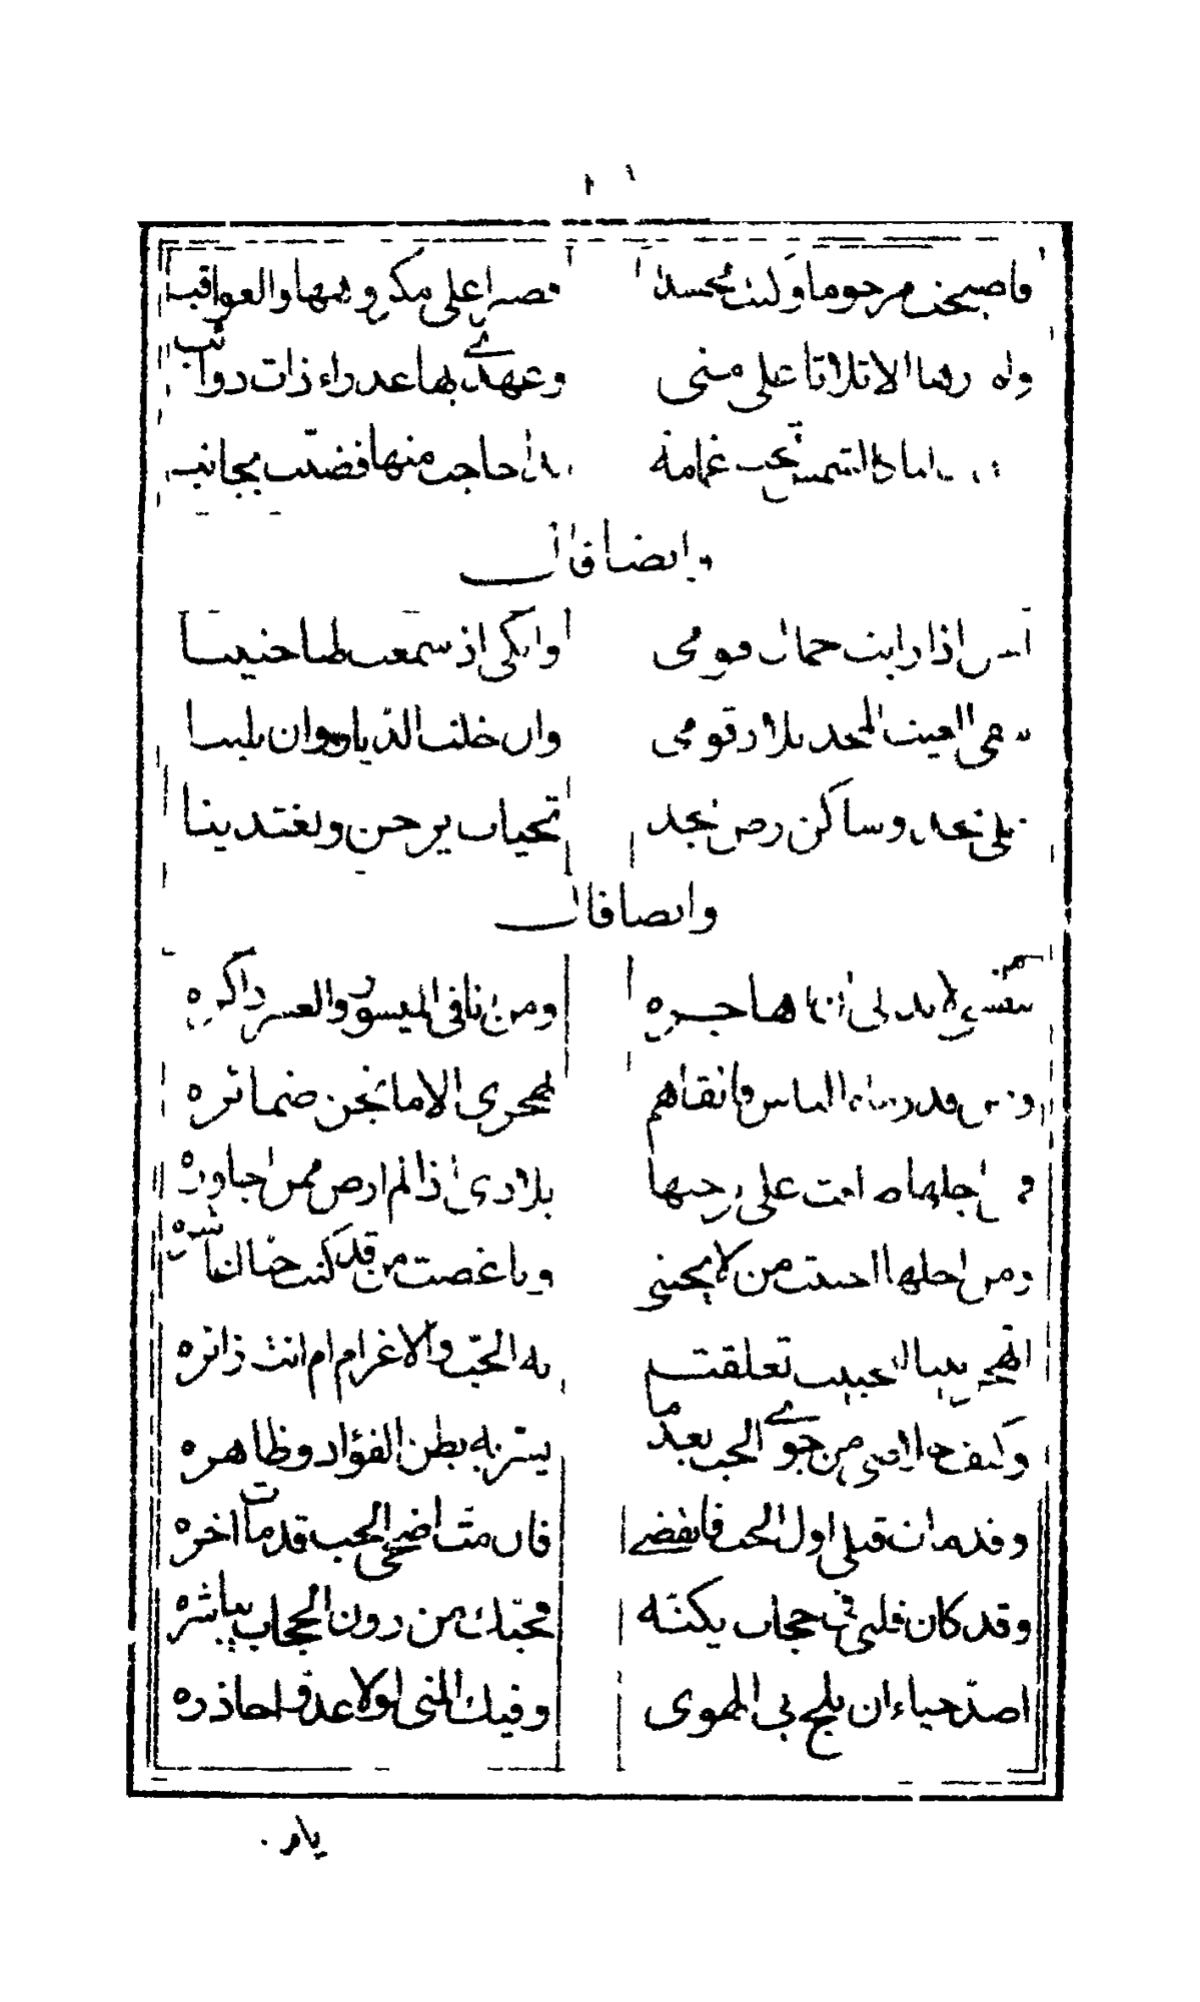 فاصبحت مرجوما وكنت محسدا فصبرا على مكروهها والعواقب
ولم ارها الا ثلاثا على منى وعهدي بها عذراء ذات ذوائب
كالشمس تحت غمامة بدا حاجب منها فضنت بجانب
وايضا قال
اذا رايت جمال قومي وابكي اذ سمعت لها حنينا
سقى الغيث المجد بلاد قومي وان خلت الديار وان بلينا
على نجد وساكن ارض نجد تحيات يرحن ويغتدينا
وايضا قال
بنفسي من لا بد لي اني هاجره ومن انا في الميسور والعسر ذاكره
ومن قد رماه الناس فاتقاهم لهجري الا ما تجن ضمائره
اجلها ضاقت علي رحبها بلادي اذا لم ارض ممن اجاوره
ومن اجلها احببت من لا يحبني وباغضت من قد كنت حينا اعاشره
اتهجر بيتا للحبيب تعلقت به الحب والا غرام ام انت زائره
وكيف خلاصي من جوي الحب بعدما يسر به بطن الفؤاد وظاهره
وقد مات قبلي اول الحب فانقضي فان مت اضحى الحب قد مات اخره
وقد كان قلبي في حجاب يكنه محبك من دون الحجاب يباشره
اصد حياء ان يلج بي الهوى وفيك المنى لولا عدو احاذره